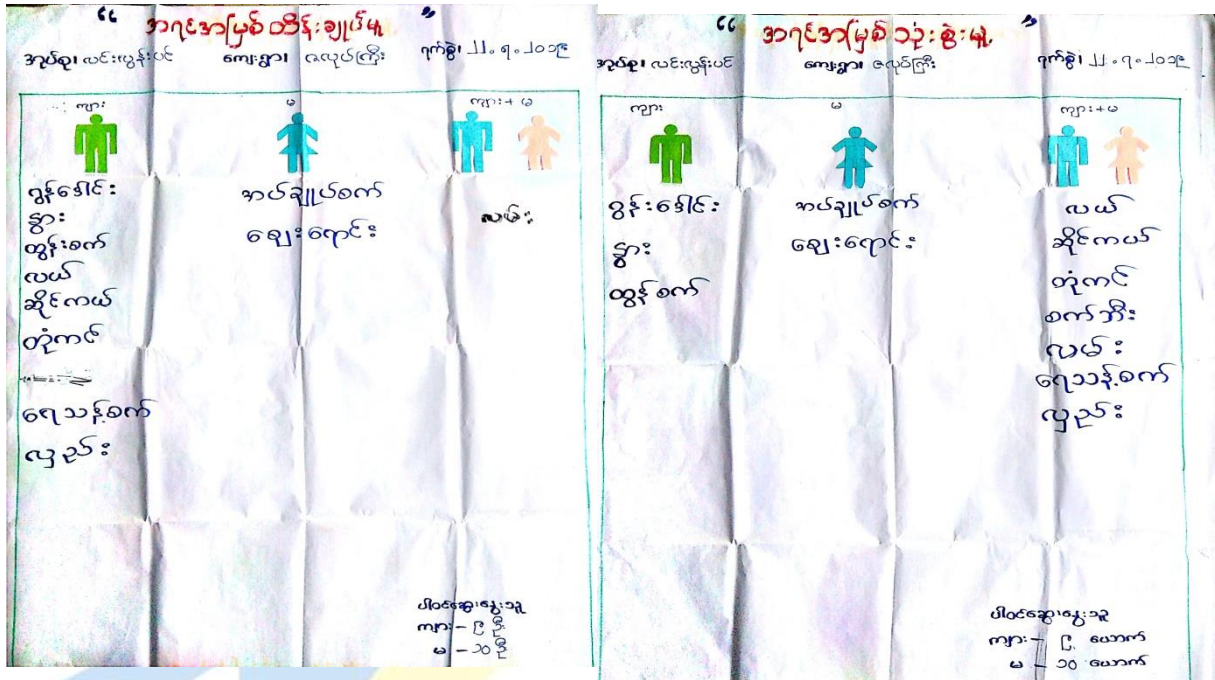 “ အရင်းအမြစ် ထိန်းချုပ်မှု ”
အုပ်စု၊ လင်းလွန်းပင် ကျေးရွာ၊ ဇလုပ်ကြီး ရက်စွဲ၊ ၂၂.၇.၂၀၁၉
ကျား မ ကျား + မ
ထွန်ဒေါင်း
နွား
ထွန်းစက်
လယ်
ဆိုင်ကယ်
တုံကင်
ရေသန့်စက်
လှည်း
အပ်ချုပ်စက်
ဈေးရောင်း
လမ်း
ပါဝင်ဆွေးနွေးသူ
ကျား - ၉ ဦး
မ - ၁၀ ဦး
“ အရင်းအမြစ် သုံးစွဲမှု ”
အုပ်စု၊ လင်းလွန်းပင် ကျေးရွာ၊ ဇလုပ်ကြီး ရက်စွဲ၊ ၂၂.၇.၂၀၁၉
ကျား မ ကျား + မ
ထွန်းဒေါင်း
နွား
ထွန်စက်
အပ်ချုပ်စက်
ဈေးရောင်း
လယ်
ဆိုင်ကယ်
တုံကင်
စက်ဘီး
လမ်း
ရေသန့်စက်
လှည်း
ပါဝင်ဆွေးနွေးသူ
ကျား - ၉ ယောက်
မ - ၁၀ ယောက်